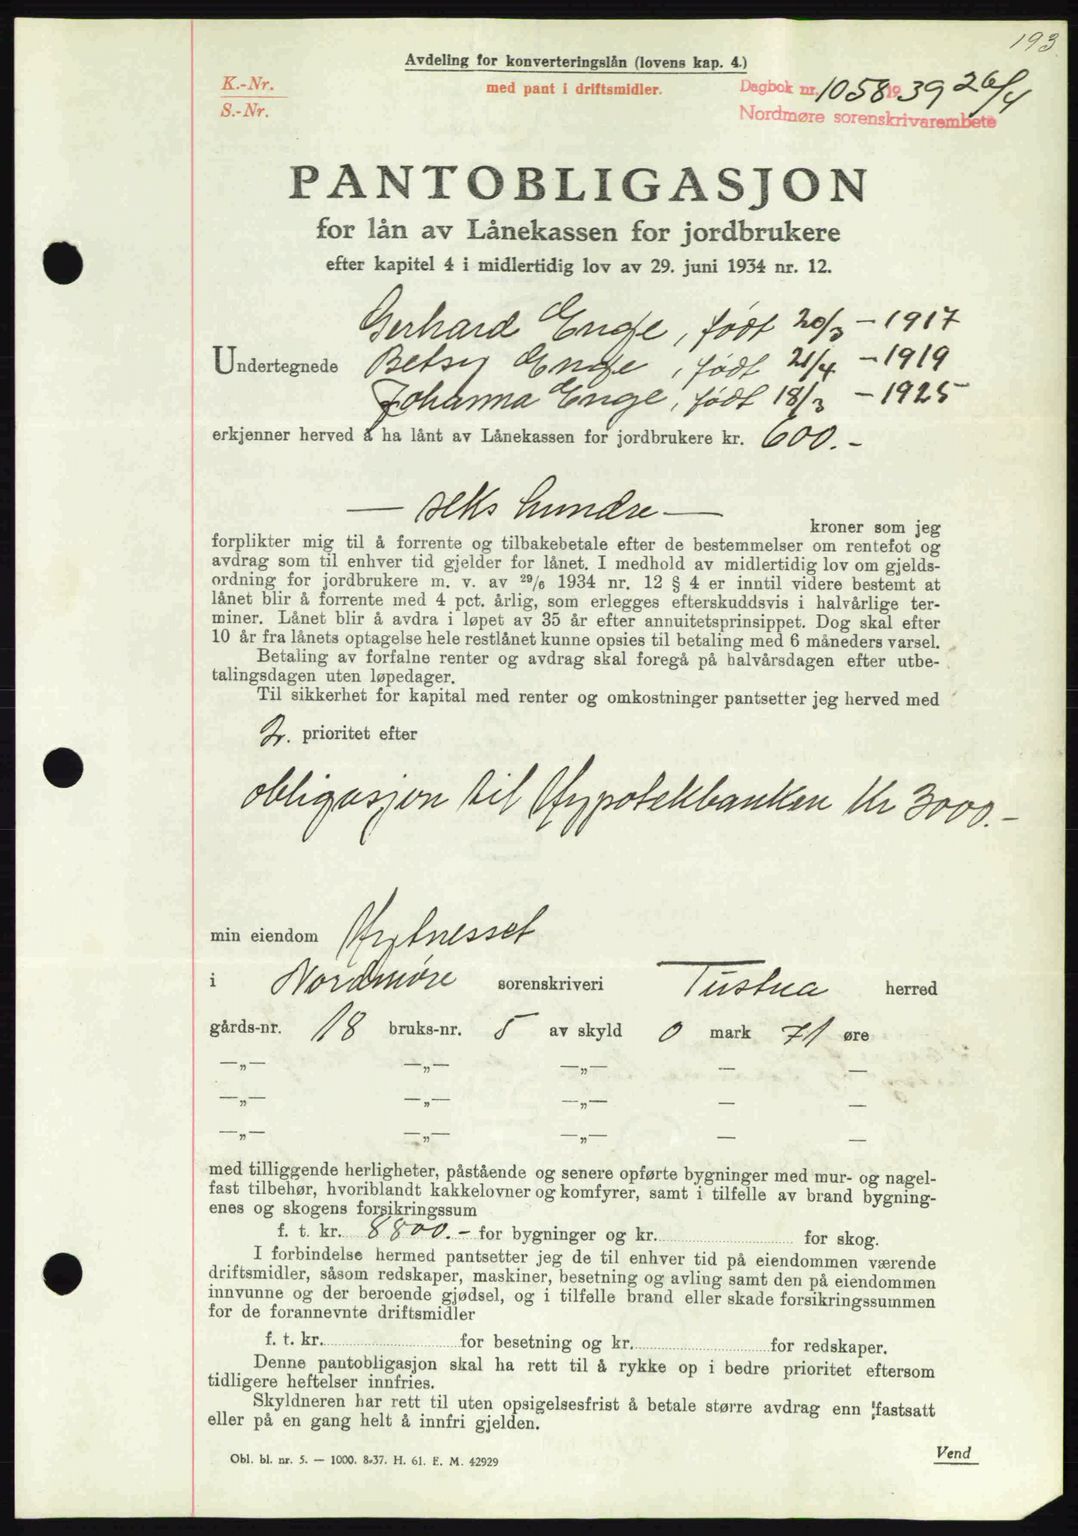 193.
Avdeling for konverteringslån (lovens kap. 4.)
K.-Nr.
med pant i driftsmidler.
Dagbok nr. 1058 1939 26/4
S.-Nr.
Nordmøre sorenskrivarembete
PANTOBLIGASJON
for lån av Lånekassen for jordbrukere
efter kapitel 4 i midlertidig lov av 29. juni 1934 nr. 12.
Gerhard Enge, født 20/3 - 1917
Undertegnede Betsy Enge, født 21/4 - 1919
Johanna Enge, født 18/3 - 1925
erkjenner herved å ha lånt av Lånekassen for jordbrukere kr. 600.-
— seks hundre —
kroner som jeg
forplikter mig til å forrente og tilbakebetale efter de bestemmelser om rentefot og
avdrag som til enhver tid gjelder for lånet. I medhold av midlertidig lov om gjelds-
ordning for jordbrukere m. v. av 29/6 1934 nr. 12 § 4 er inntil videre bestemt at
lånet blir å forrente med 4 pct. årlig, som erlegges efterskuddsvis i halvårlige ter-
miner. Lånet blir å avdra i løpet av 35 år efter annuitetsprinsippet. Dog skal efter
10 år fra lånets optagelse hele restlånet kunne opsies til betaling med 6 måneders varsel.
Betaling av forfalne renter og avdrag skal foregå på halvårsdagen efter utbe-
talingsdagen uten løpedager.
Til sikkerhet for kapital med renter og omkostninger pantsetter jeg herved med
2. prioritet efter
obligasjon til Hypotekbanken Kr 3000.-
min eiendom Hytnesset
i Nordmøre sorenskriveri Tustna herred
gårds-nr. 18 bruks-nr. 5 av skyld 0 mark 71 øre
—„— —„— —„— — —
—„— —„— —„— — —
—„— —„— —„— — —
med tilliggende herligheter, påstående og senere opførte bygninger med mur- og nagel-
fast tilbehør, hvoriblandt kakkelovner og komfyrer, samt i tilfelle av brand bygning-
enes og skogens forsikringssum
f. t. kr. 8800.- for bygninger og kr. for skog.
I forbindelse hermed pantsetter jeg de til enhver tid på eiendommen værende
driftsmidler, såsom redskaper, maskiner, besetning og avling samt den på eiendommen
innvunne og der beroende gjødsel, og i tilfelle brand eller skade forsikringssummen
for de forannevnte driftsmidler
f. t. kr. for besetning og kr. for redskaper.
Denne pantobligasjon skal ha rett til å rykke op i bedre prioritet eftersom
tidligere heftelser innfries.
Skyldneren har rett til uten opsigelsesfrist å betale større avdrag enn fastsatt
eller på en gang helt å innfri gjelden.
Obl. bl. nr. 5. — 1000. 8-37. H. 61. E. M. 42929
Vend